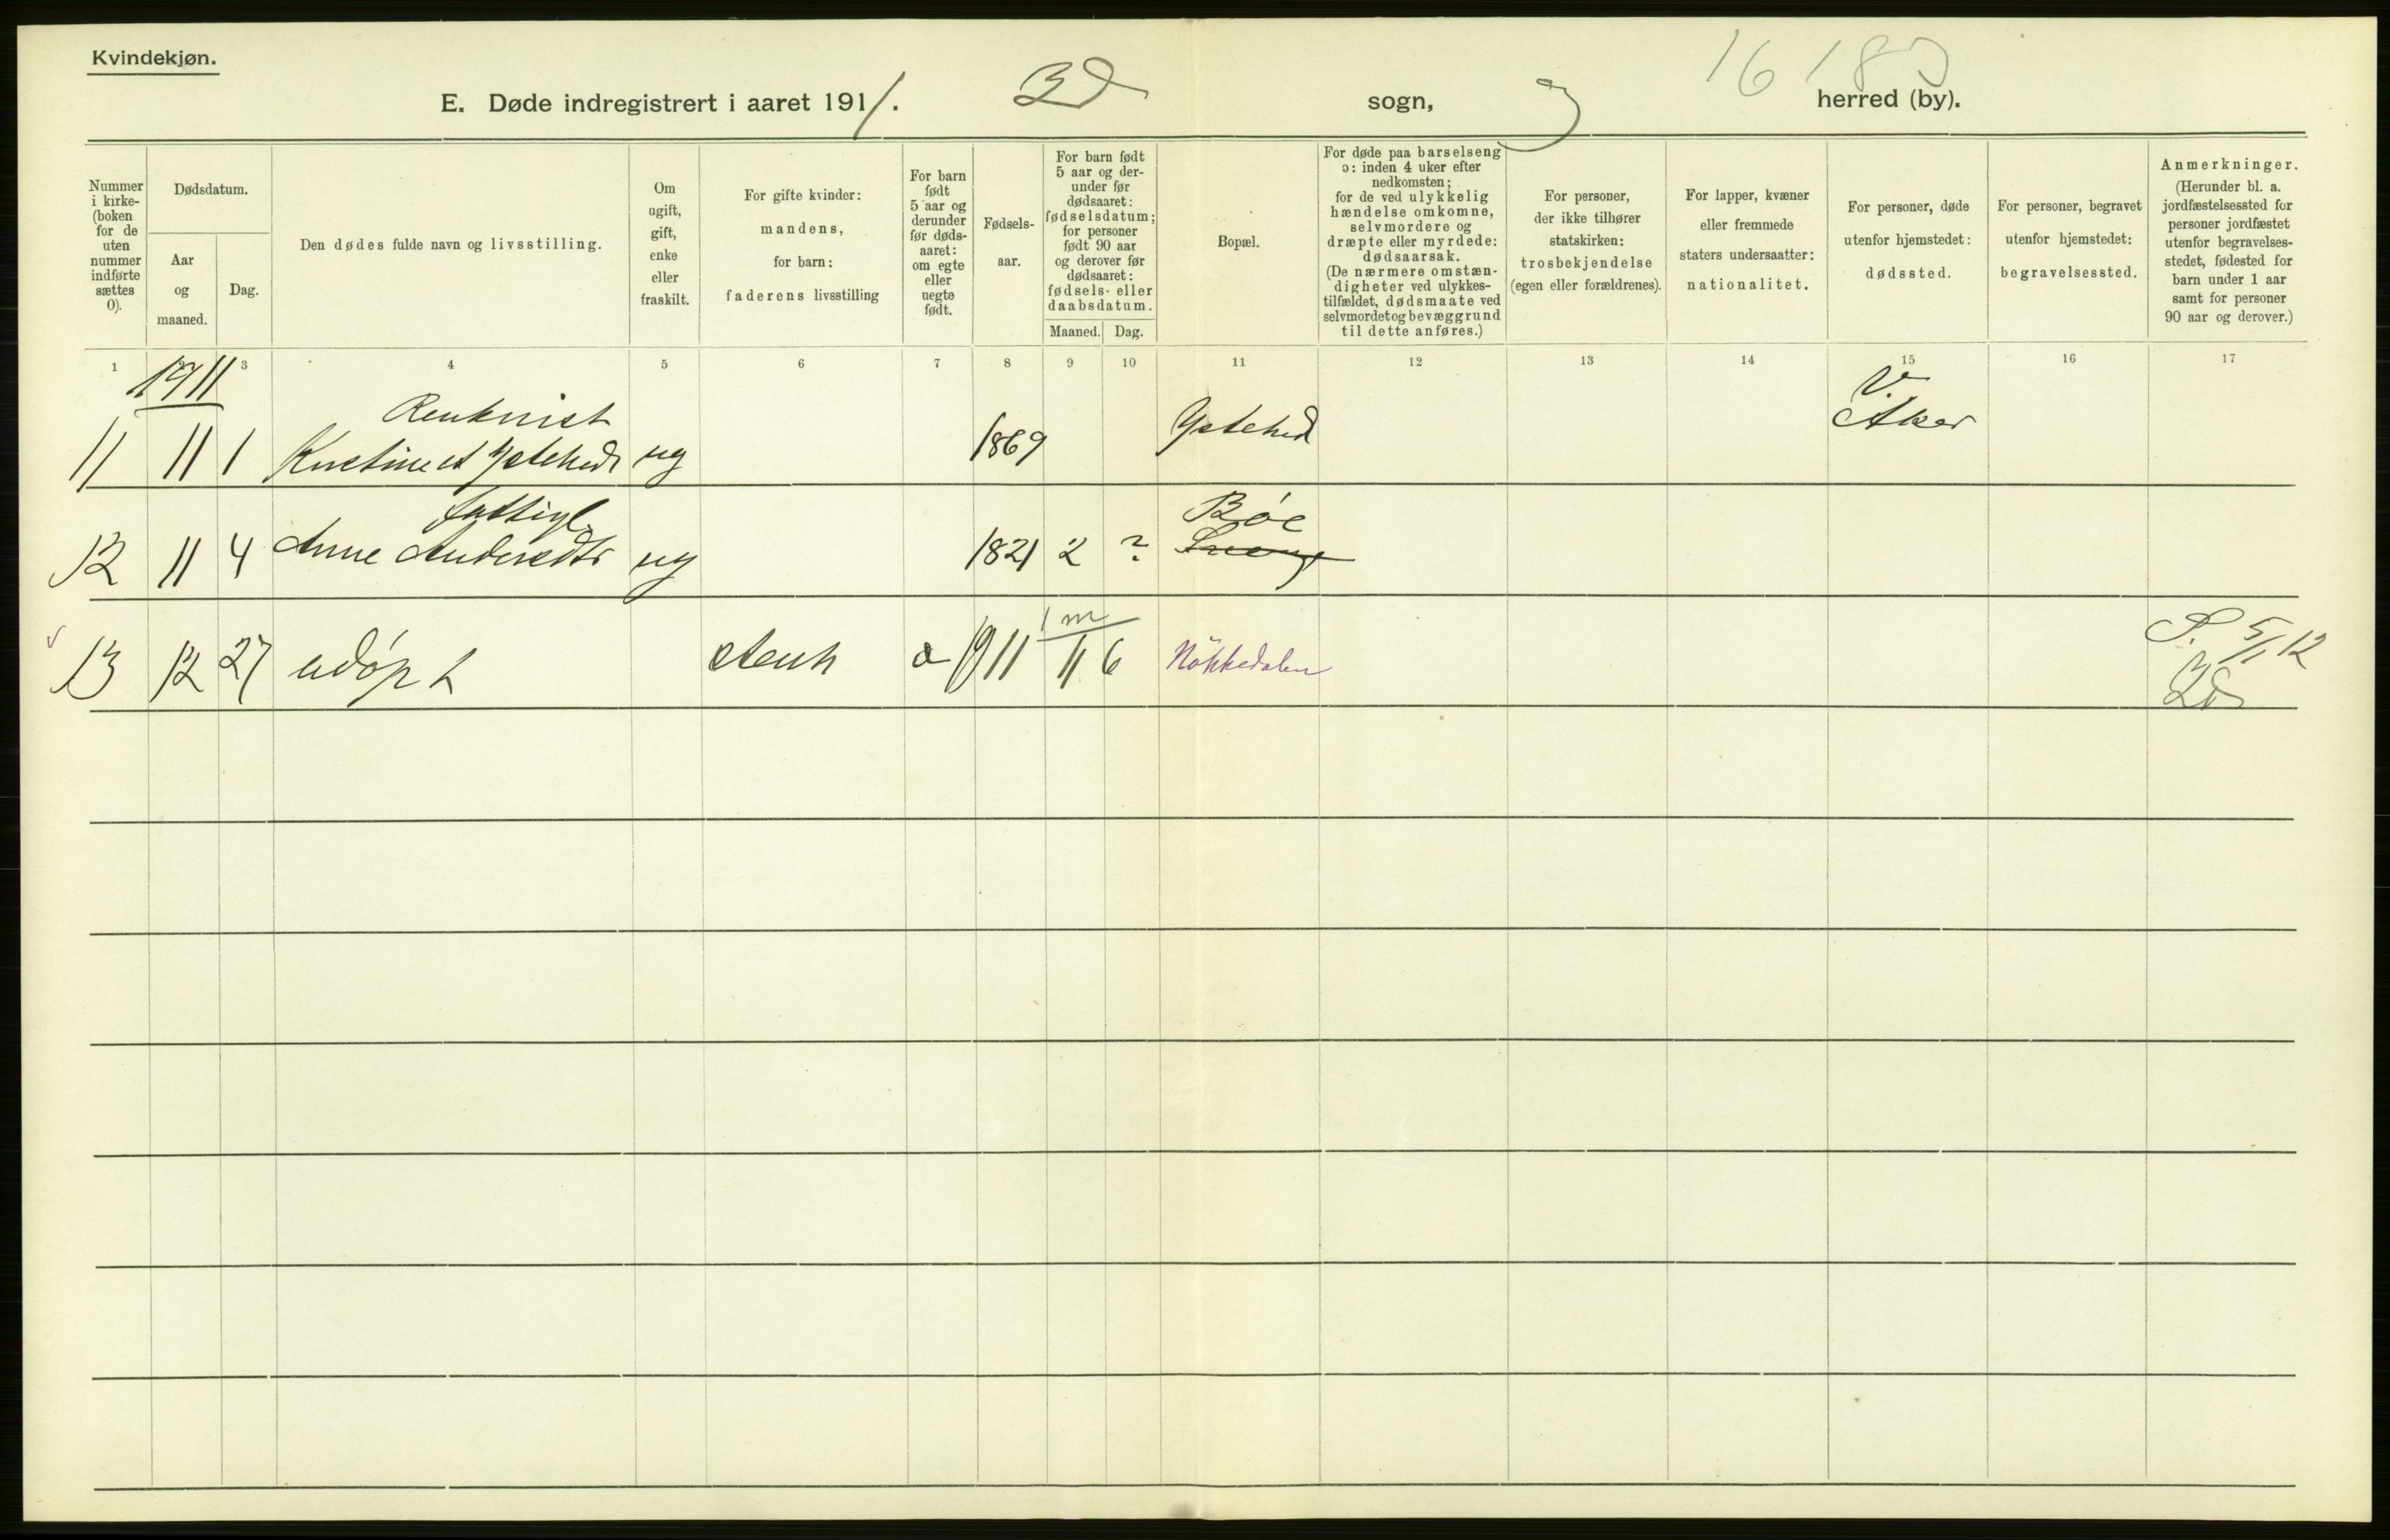 Kvindekjøn.
E. Døde indregistrert i aaret 1911. sogn, herred (by).
16
Nummer i kirke- (boken for de uten nummer indførte sættes 0).
Dødsdatum.
Aar og maaned.
Dag.
Den dødes fulde navn og livsstilling.
Om ugift, gift, enke eller fraskilt.
For gifte kvinder: mandens, for barn: faderens livsstilling
For barn født 5 aar og derunder før døds- aaret: om egte eller uegte født.
Fødsels- aar.
For barn født 5 aar og der- under før dødsaaret: fødselsdatum; for personer født 90 aar og derover før dødsaaret: fødsels- eller daabsdatum.
Maaned.
Dag.
Bopæl.
For døde paa barselseng ɔ: inden 4 uker efter nedkomsten; for de ved ulykkelig hændelse omkomne, selvmordere og dræpte eller myrdede: dødsaarsak. (De nærmere omstæn- digheter ved ulykkes- tilfældet, dødsmaate ved selvmordet og bevæggrund til dette anføres.)
For personer, der ikke tilhører statskirken: trosbekjendelse (egen eller forældrenes).
For lapper, kvæner eller fremmede staters undersaatter: nationalitet.
For personer, døde utenfor hjemstedet: dødssted.
For personer, begravet utenfor hjemstedet: begravelsessted.
Anmerkninger. (Herunder bl. a. jordfæstelsessted for personer jordfæstet utenfor begravelses- stedet, fødested for barn under 1 aar samt for personer 90 aar og derover.)
1 3 4 5 6 7 8 9 10 11 12 13 14 15 16 17
1911
V.
11 11 1 Ystehed ug 1869 Ystehed Aker
Bøe
12 11 4 Anne Andersdtr ug 1821 2 ?
1 m
13 12 27 udøpt 1911 11 6 Nökkedalen
5/1 12